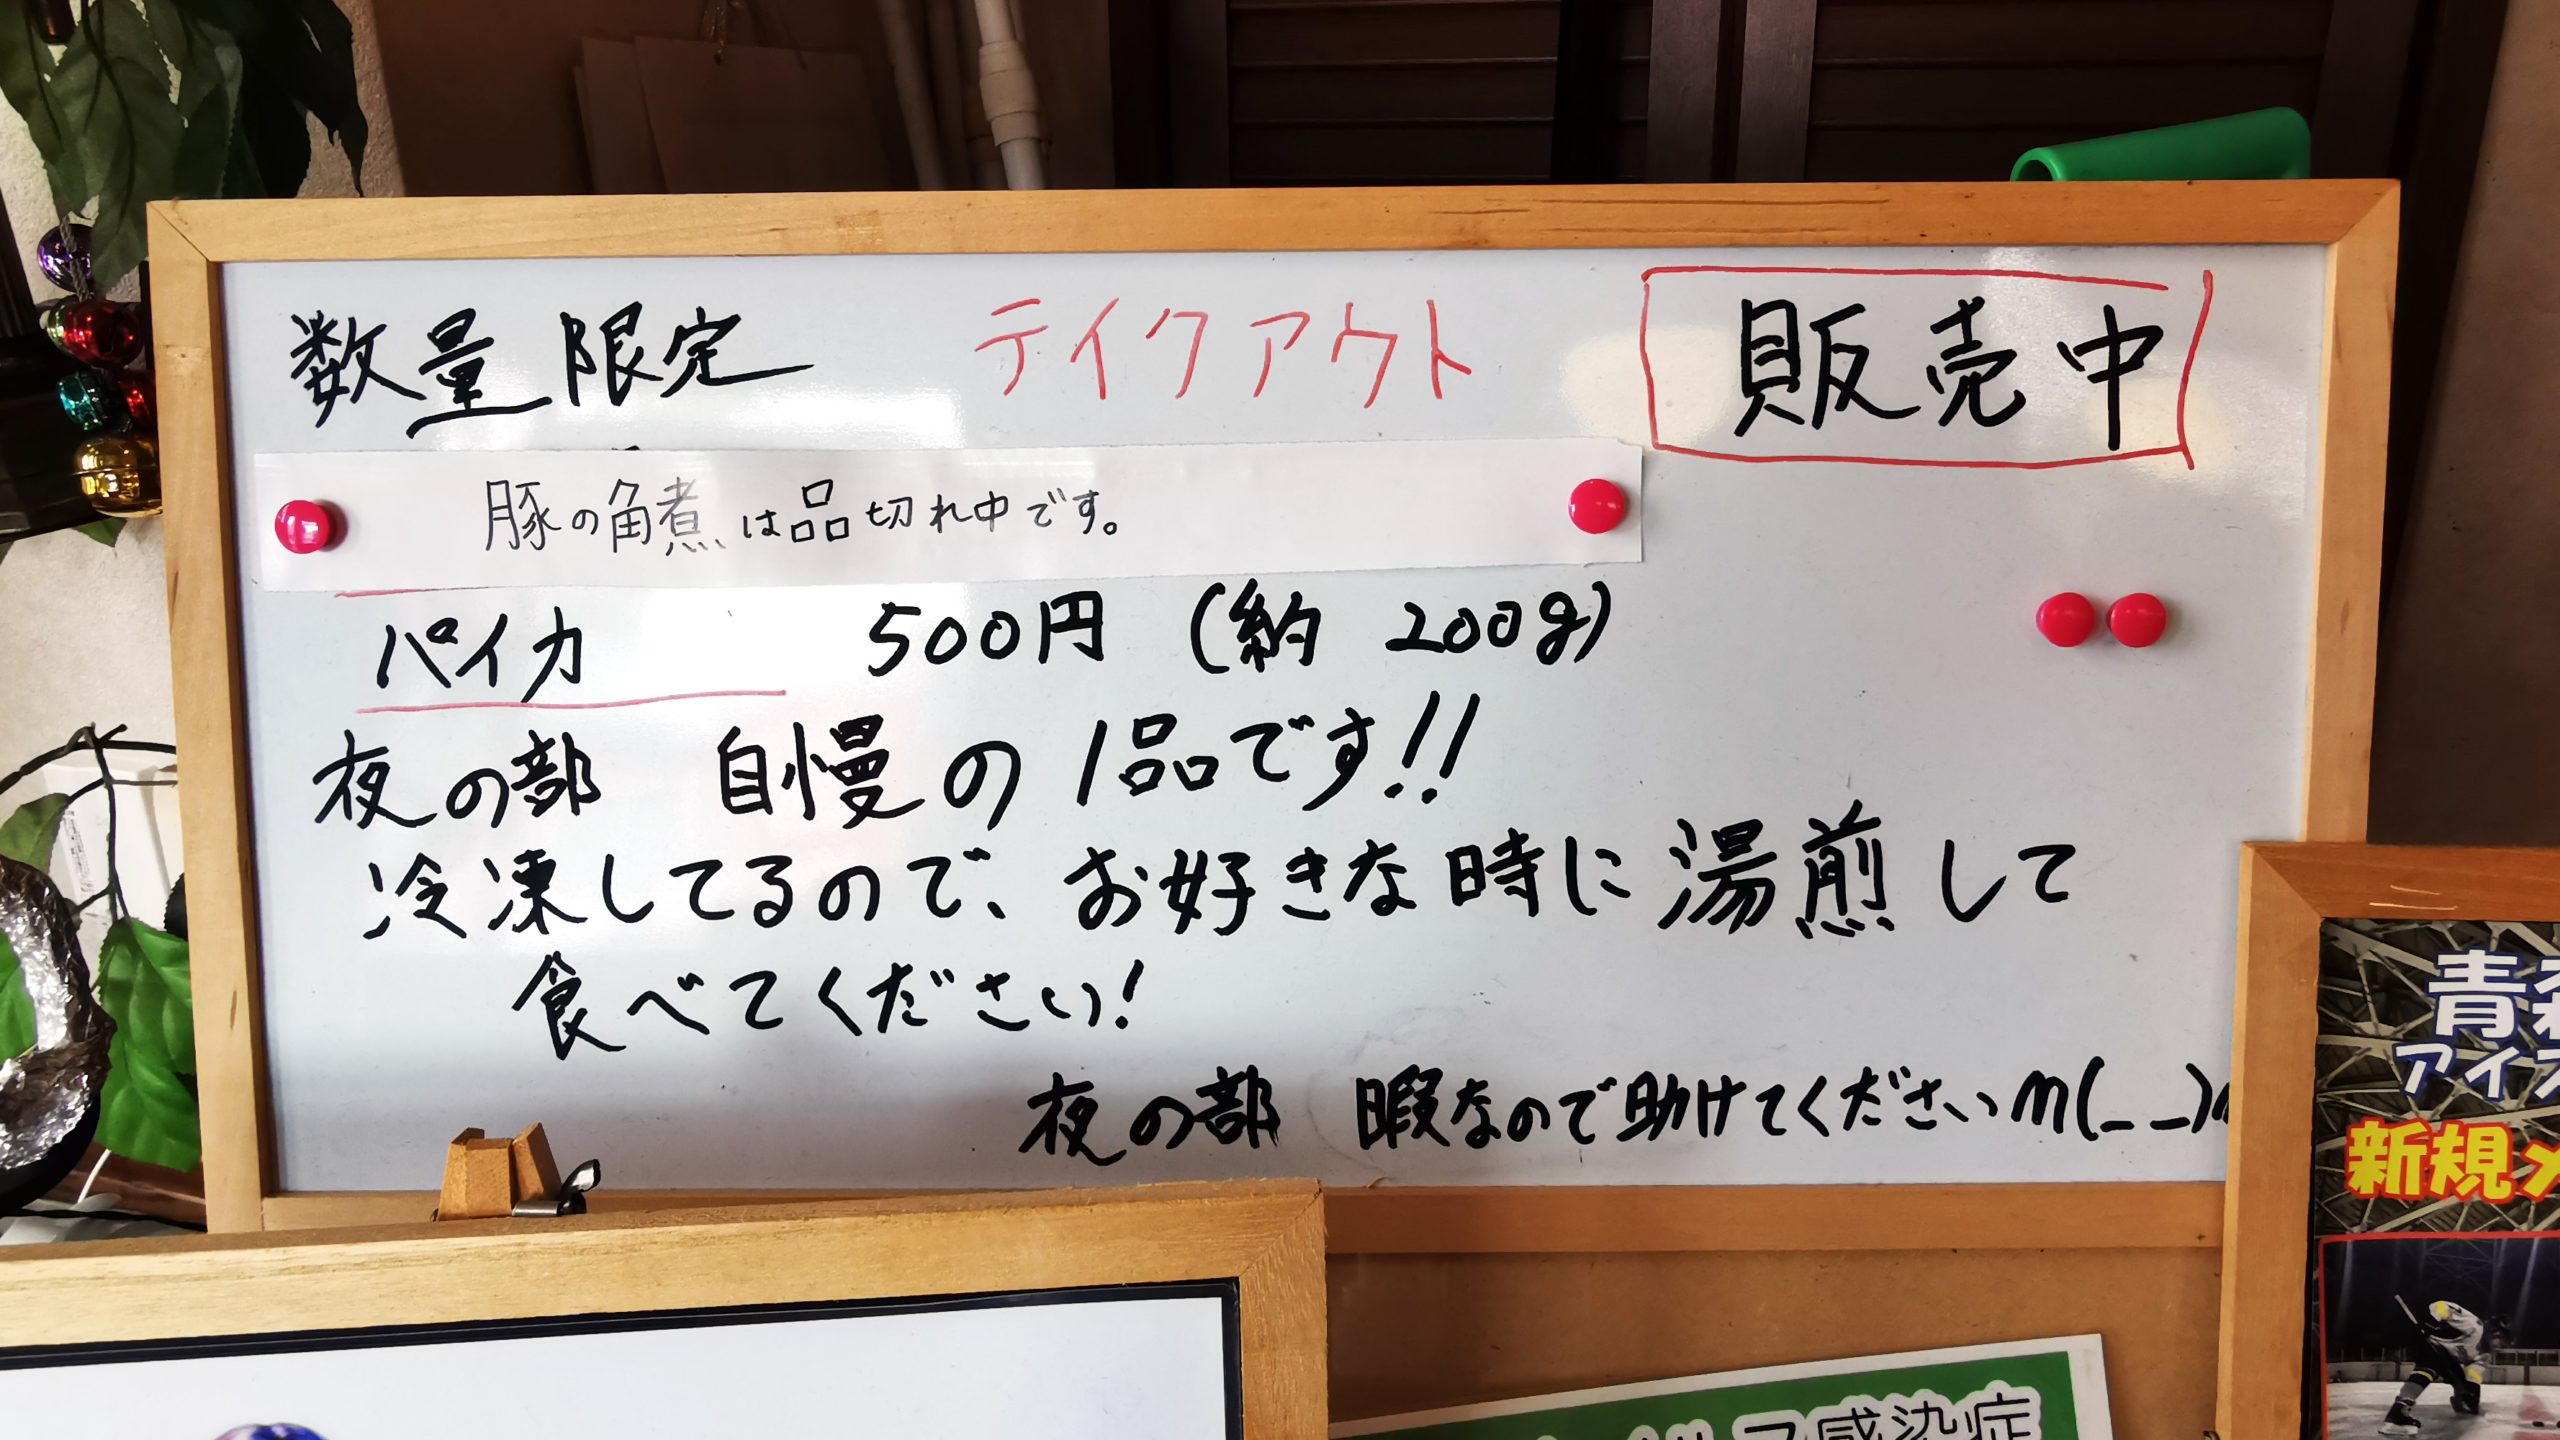 数量限定 テイクアウト 販売中
豚の角煮は品切れ中です。
パイカ 500円 (約 200g)
夜の部 自慢の1品です!!
冷凍してるので、お好きな時に湯煎して
食べてください!
夜の部 暇なので助けてくださいm(_ _)m
青森
アイス
新規メ
感染症